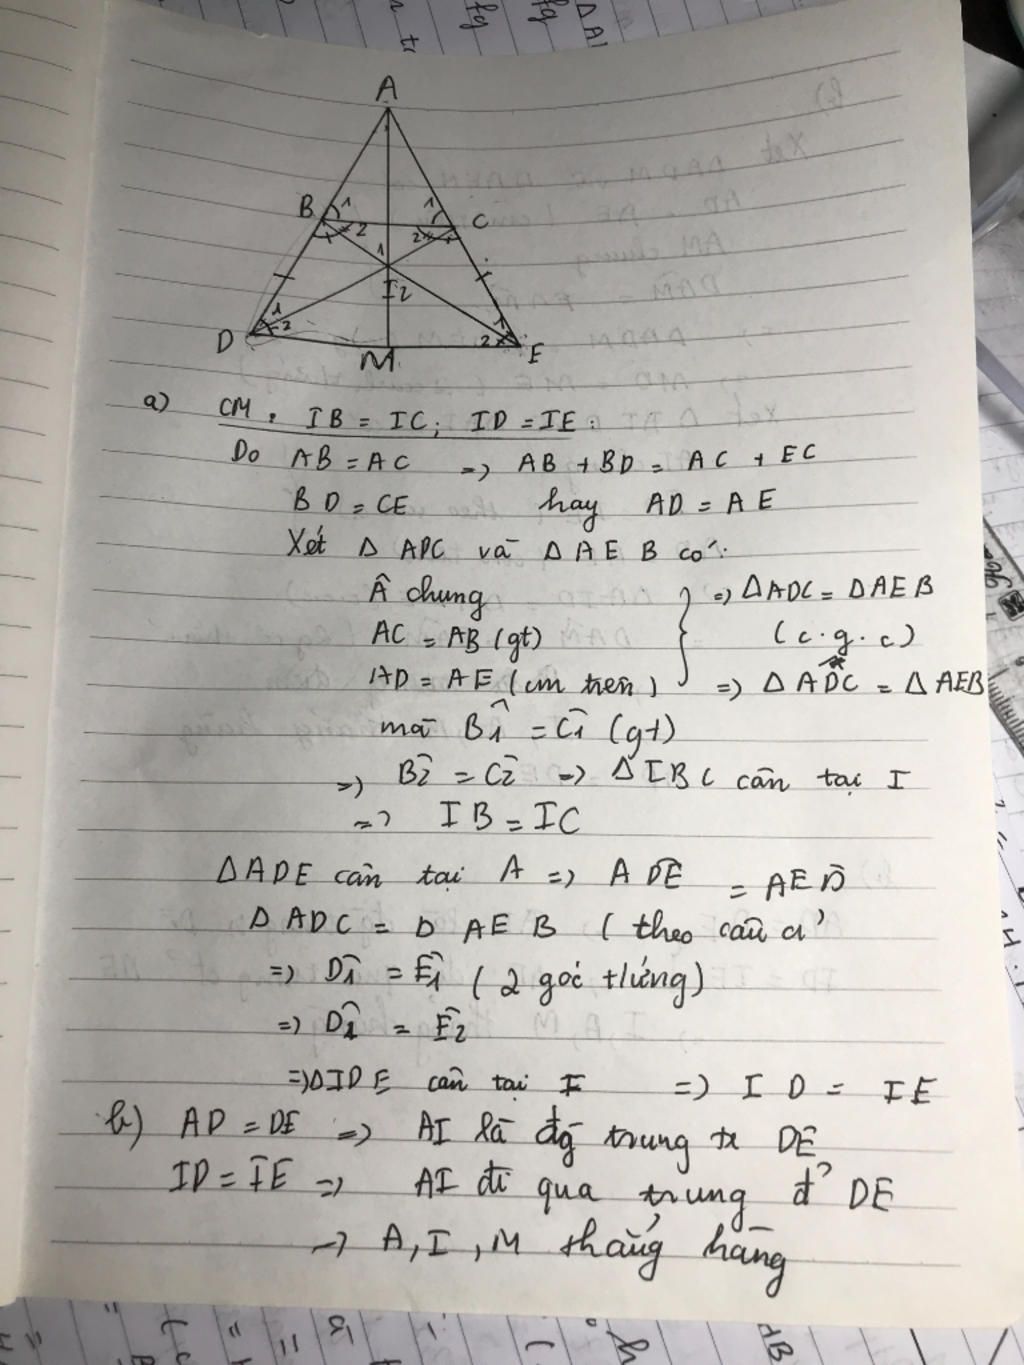 A
B 1 1 C
2 2
1
I 2
1 2 1 2
D M E
a) CM: IB = IC; ID = IE:
Do AB = AC => AB + BD = AC + EC
BD = CE hay AD = AE
Xét Δ ADC và Δ AEB có:
Â chung
AC = AB (gt) => ΔADC = ΔAEB
AD = AE (cm trên) (c.g.c)
=> Δ ADC = Δ AEB
mà B̂1 = Ĉ1 (gt)
=> B̂2 = Ĉ2 => Δ IBC cân tại I
=> IB = IC
ΔADE cân tại A => ADE = AED
Δ ADC = Δ AEB (theo câu a)
=> D̂1 = Ê1 (2 góc t/ứng)
=> D̂2 = Ê2
=> ΔIDE cân tại I => ID = IE
b) AD = DE => AI là đg trung tr DE
ID = IE => AI đi qua trung đ² DE
=> A, I, M thẳng hàng